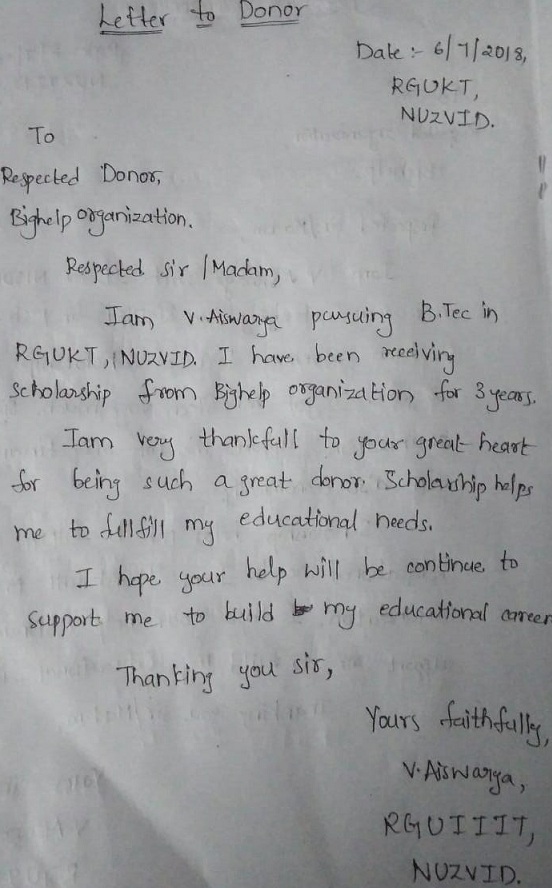 Letter to Donor
Date :- 6/7/2018,
RGUKT,
NUZVID.
To
Respected Donor,
Bighelp organization.
Respected sir / Madam,
Iam V. Aiswarya pursuing B.Tec in
RGUKT, NUZVID. I have been receiving
scholarship from Bighelp organization for 3 years.
Iam very thankfull to your great heart
for being such a great donor. Scholarship helps
me to fullfill my educational needs.
I hope your help will be continue to
support me to build my educational career
Thanking you sir,
Yours faithfully,
V. Aiswarya,
RGUIIIT,
NUZVID.